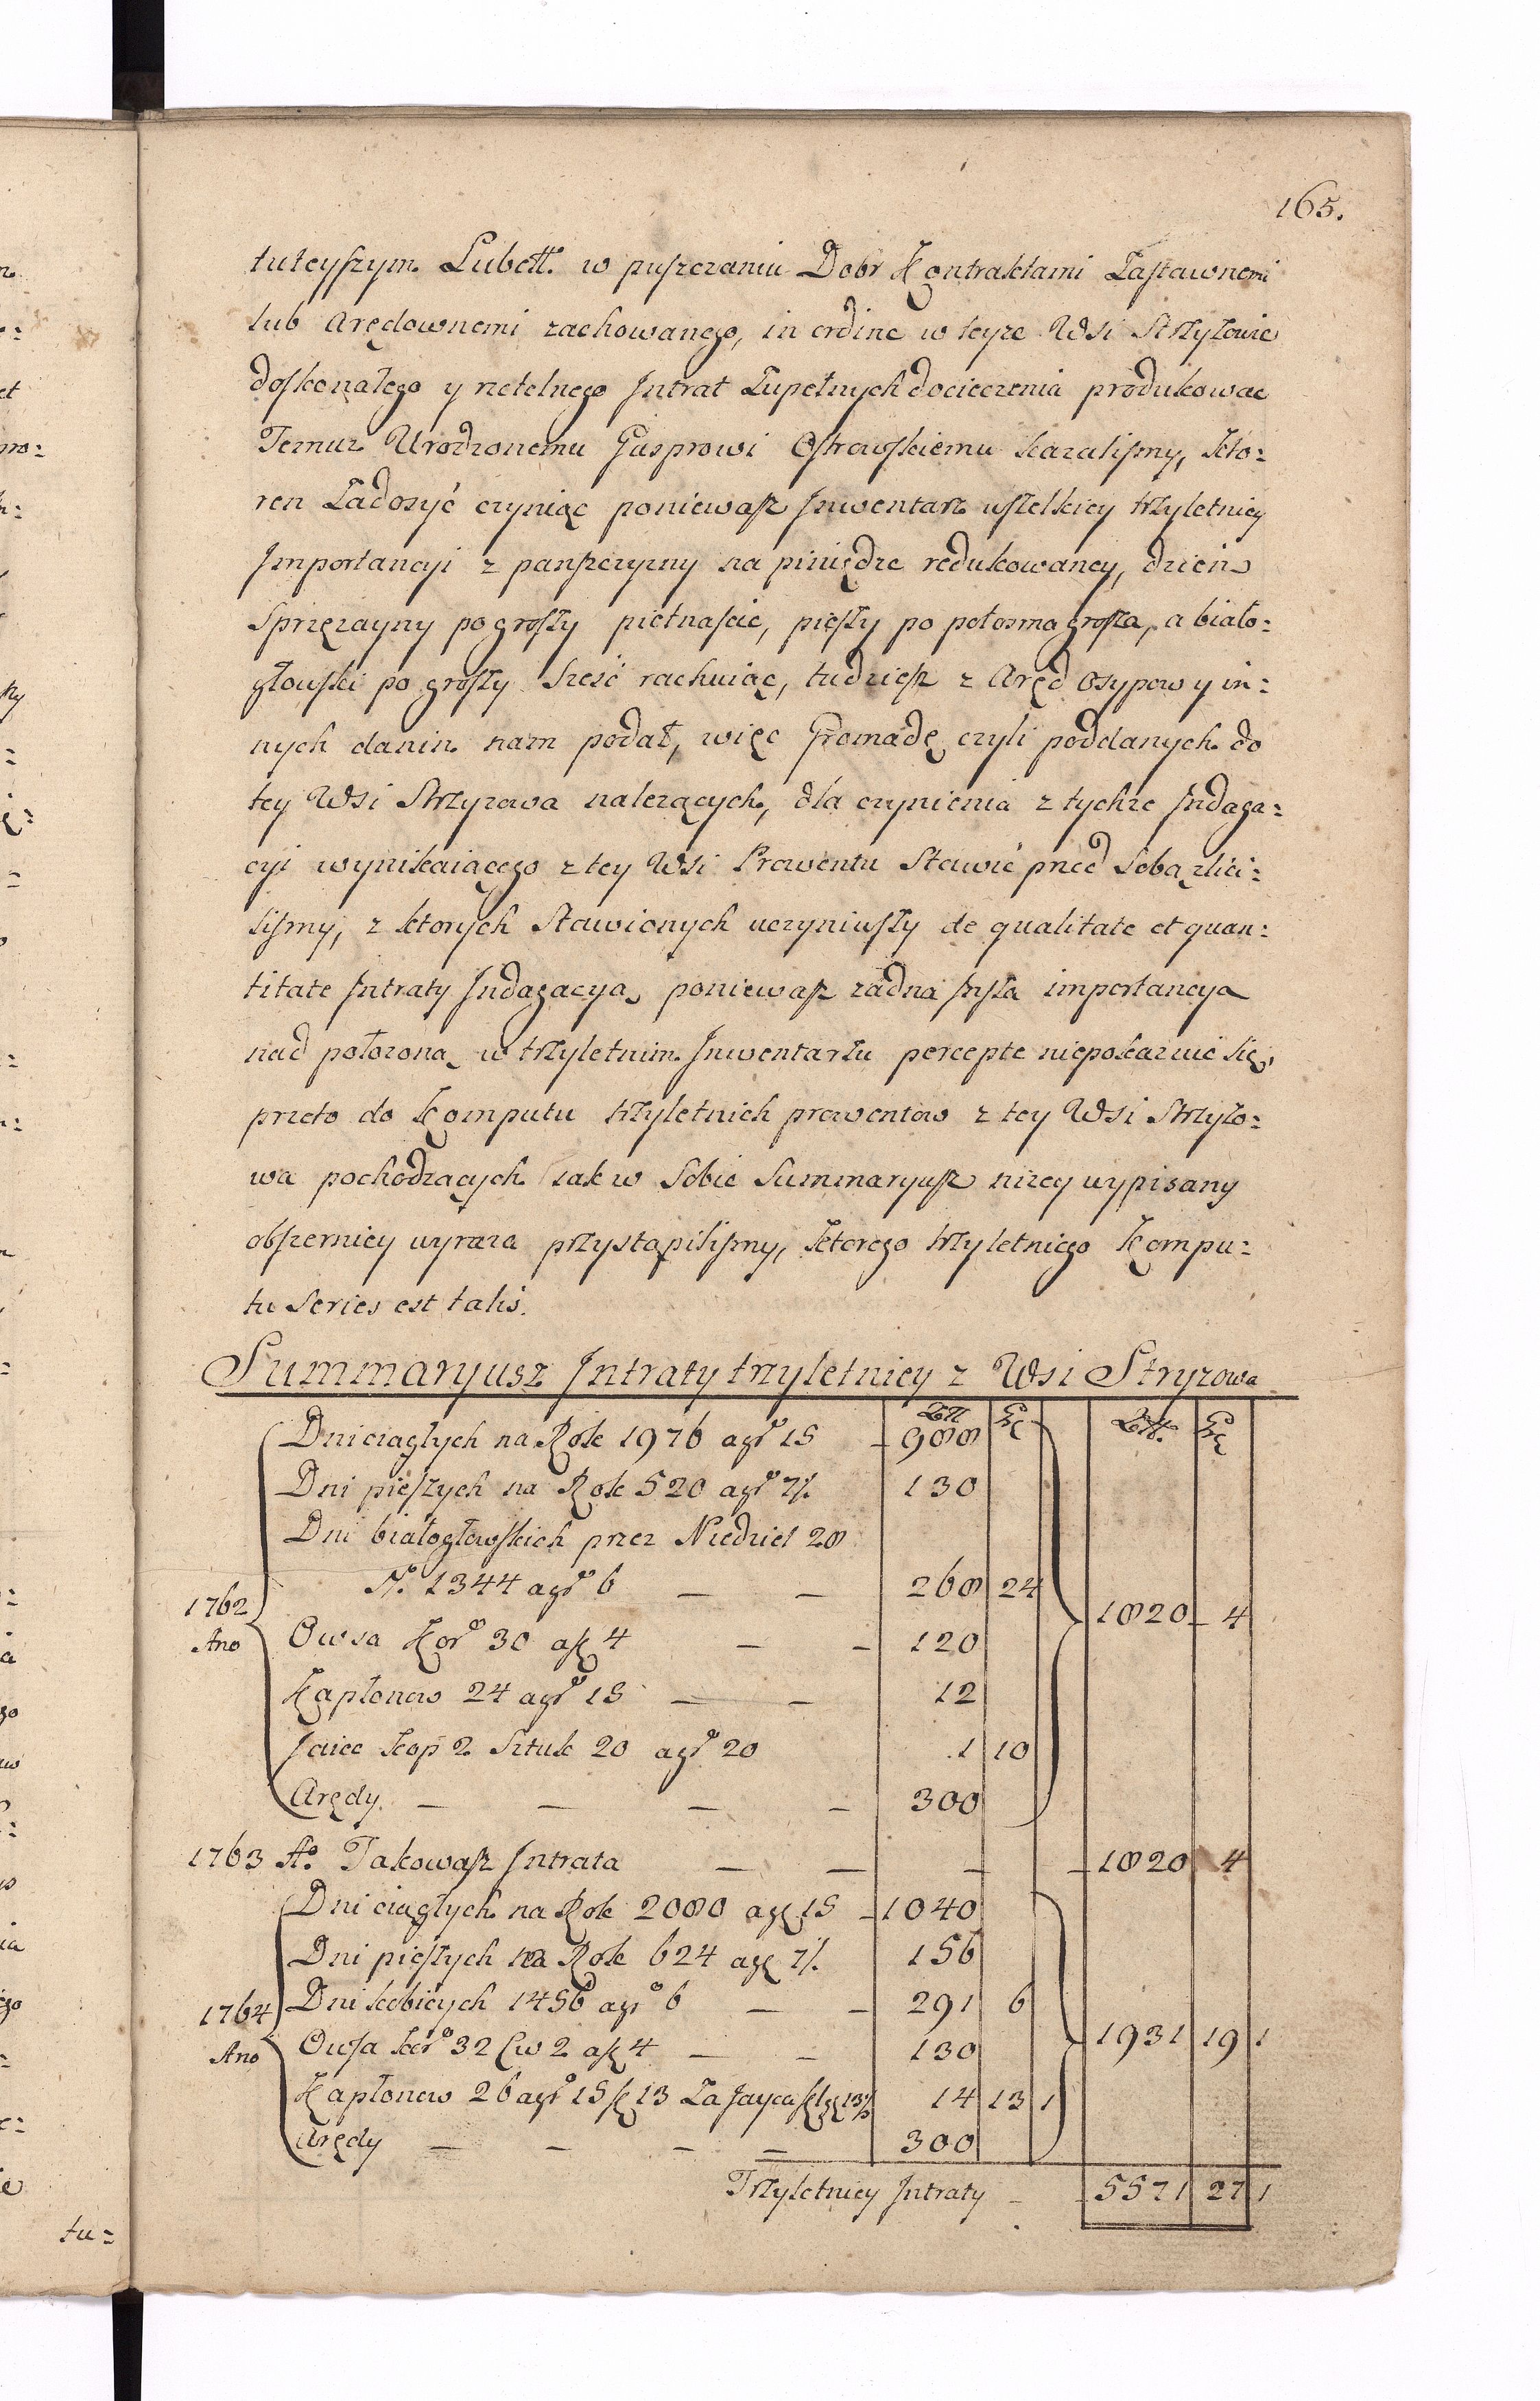 165.
tuteyszym Lubett. w puszczaniu Dobr Kontraktami Zastawnemi
lub Arędownemi zachowanego, in ordine w teyze Wsi Strzyżowie
doskonałego y rzetelnego Jntrat Zupełnych docieczenia produkowac
Temuz Urodzonemu Gasprowi Ostrowskiemu kazalismy, kto=
ren Zadosyć czyniąc poniewasz Jnwentarz wszelkiey trzyletniey
Jmportancyi z panszczyzny na pieniędze redukowaney, dzien
sprzęzayny po groszy pietnascie, pieszy po potosma grosza, a biało=
głowski po groszy sześć rachuiąc, tudziesz z Aręd Osypow y in=
nych danin nam podał, więc Gromadę czyli poddanych do
tey Wsi Strzyzowa nalezących, dla czynienia z tychze Jndaga=
cyi wynikaiącego z tey Wsi Prowentu Stawić przed Sobą zlici=
lismy, z ktorych Stawionych uczyniwszy de qualitate et quan=
titate Jntraty Jndagacyą, poniewasz zadna Jnsza importancya
nad połozoną w trzyletnim Jnwentarzu percepte niepokazuie się,
przeto do Komputu trzyletnich prowentow z tey Wsi Strzyzo=
wa pochodzących iak w Sobie Summaryusz nizey wypisany
obszerniey wyraza przystąpilismy, ktorego trzyletniego Kompu=
tu Series est talis.
Summaryusz Jntraty trzyletniey z Wsi Stryzowa
Złł Gr Złł. Gr
Dni ciagłych na Rok 1976 a gr 15 – 988
Dni pieszych na Rok 520 a gr 7½ 130
Dni białogłowskich przez Niedziel 28
N. 1344 a gr 6 — — 268 24
1762 Ano 1820 – 4
Owsa Kor 30 a f 4 — – 120
Kapłonow 24 a gr 15 — — 12
Jaiec kop 2 Sztuk 20 a gr 20 1 10
Arędy — — — – 300
1763 Ao. Takowasz Jntrata — — – – 1820 4
Dni ciągłych na Rok 2080 a gr 15 – 1040
Dni pieszych na Rok 624 a gr 7½ 156
1764 Ano Dni kobicych 1456 a gr 6 — – 291 6
1931 19 1
Owsa kor 32 Cw 2 a f 4 — – 130
Kapłonow 26 a gr 15 f 13 Za Jayca f 1 gr 13½ 14 13 1
Arędy — — – — 300
Trzyletniey Jntraty – – 5571 27 1
tu=